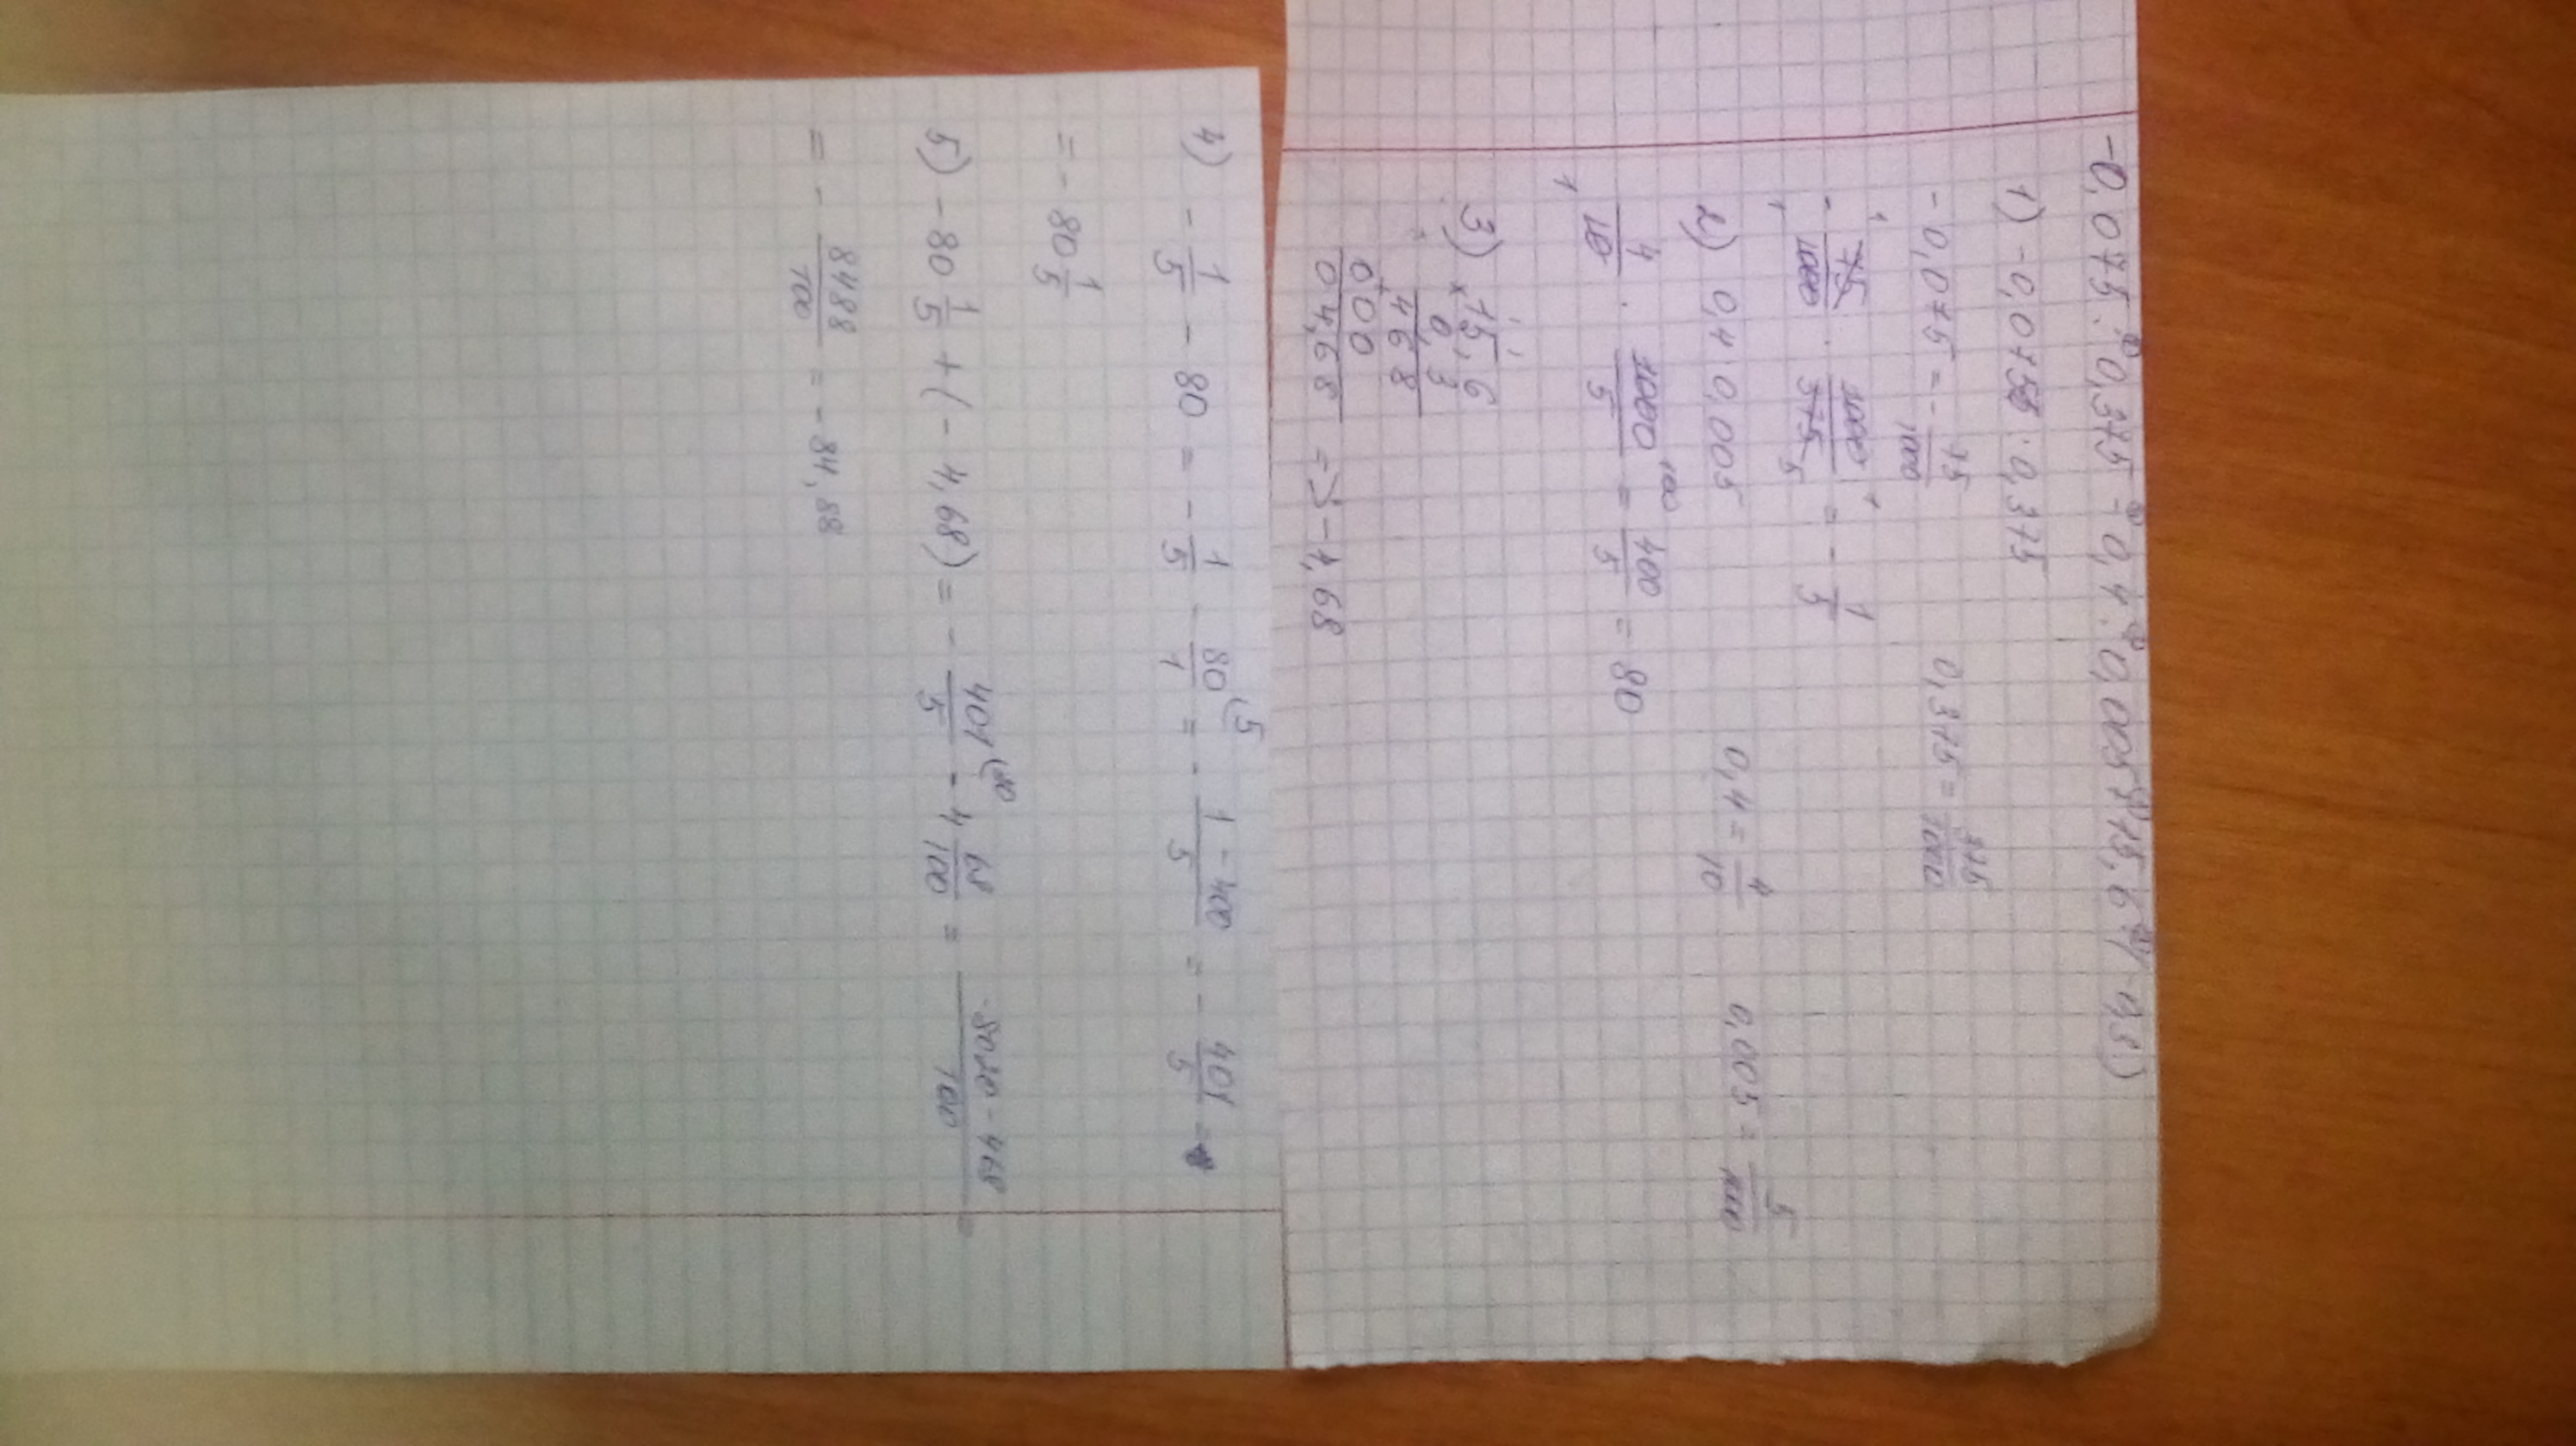 -0,075 : 0,375 - 0,4 : 0,005 + 15,6 · (-0,3)
1) -0,075 : 0,375
-0,075 = - 75/1000    0,375 = 375/1000
- 75/1000 · 1000/375 = - 1/5
2) 0,4 : 0,005    0,4 = 4/10    0,005 = 5/1000
4/10 · 1000/5 = 400/5 = 80
3) × 15,6
0,3
468
+
000
04,68 => -4,68
4) - 1/5 - 80 = - 1/5 - 80/1 (5 = - 1 - 400/5 = - 401/5 =
= - 80 1/5
5) - 80 1/5 + (- 4,68) = - 401/5 (20 - 4 68/100 = 8020 - 468/100 =
= - 8488/100 = - 84,88